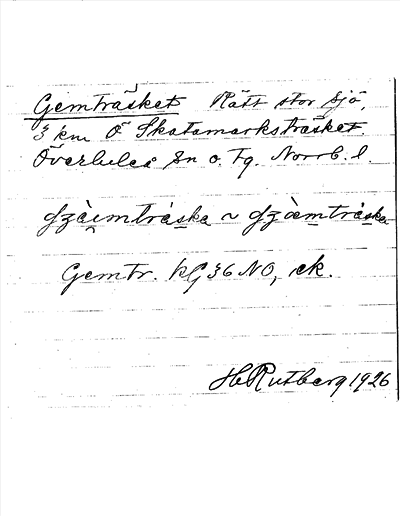 Gemträsket Rätt stor sjö,
3 km Ö Skatamarksträsket.
Överlulea sn o. tg. Norrb. l.
gzàimtràska ~ gzàmtràska
Gemtr. kG 36 NO, ek.
H Rutberg 1926